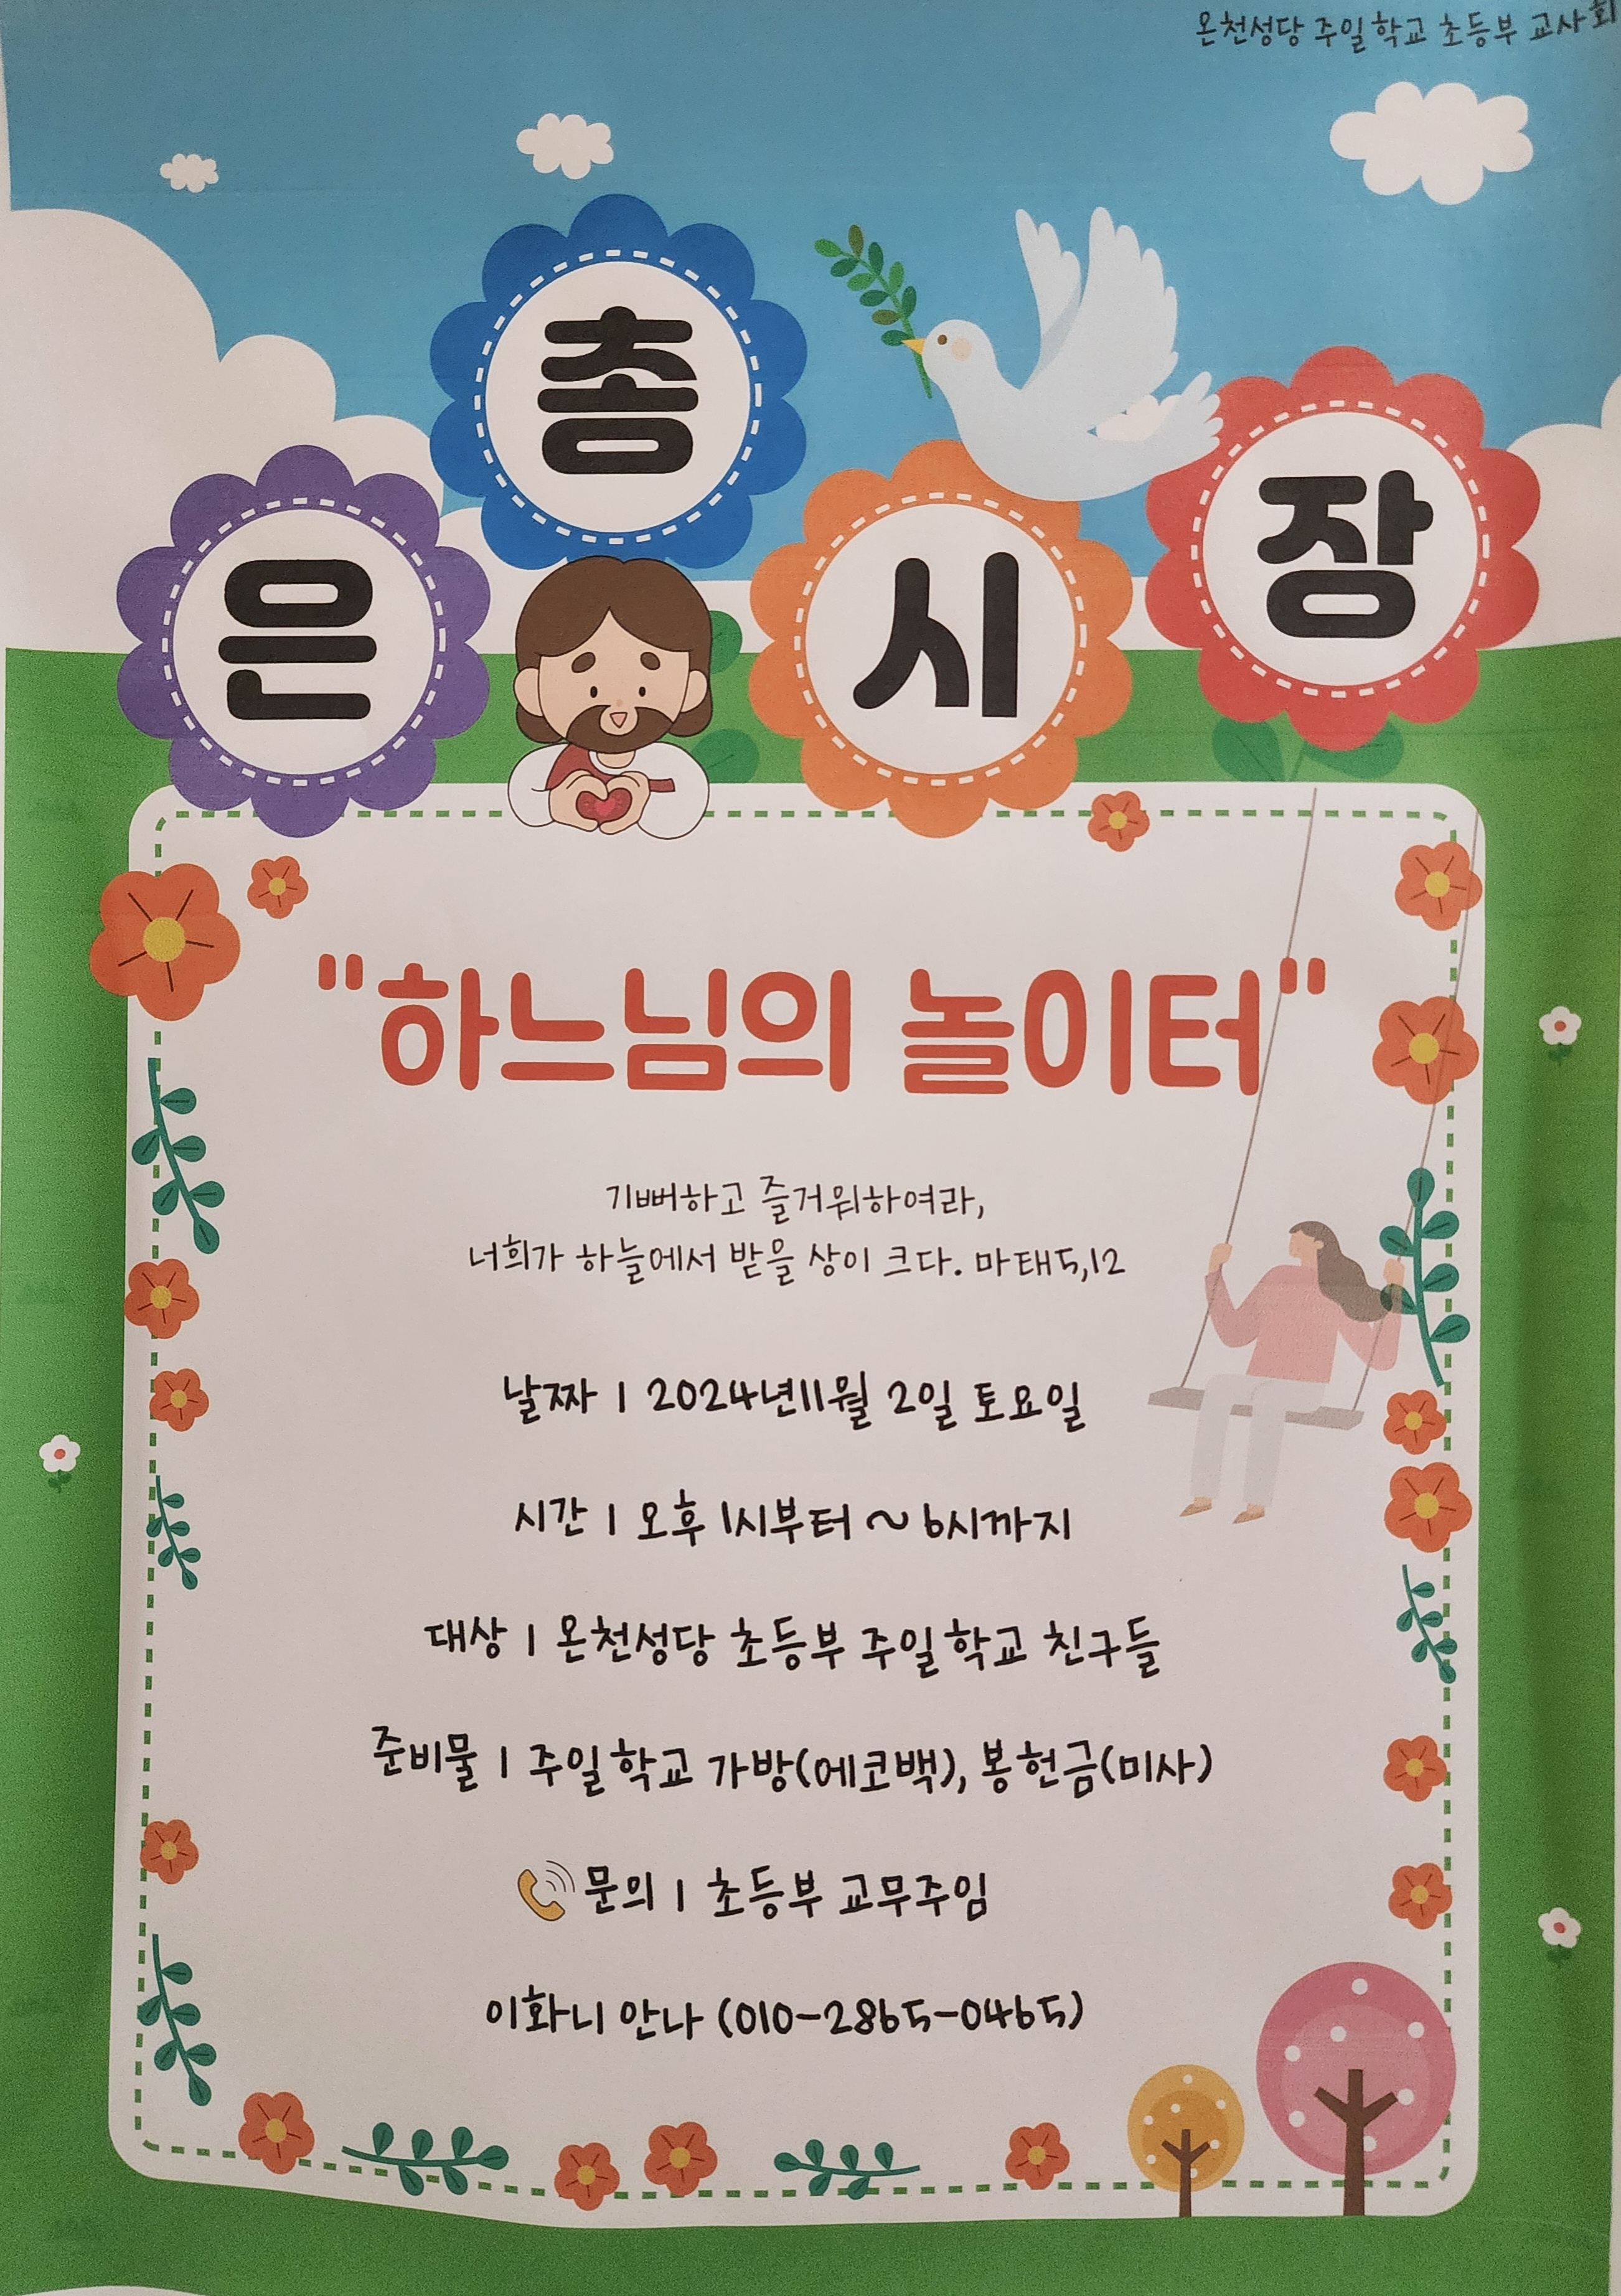 온천성당 주일학교 초등부 교사회
은총시장
"하느님의 놀이터"
기뻐하고 즐거워하여라,
너희가 하늘에서 받을 상이 크다. 마태5,12
날짜 | 2024년11월 2일 토요일
시간 | 오후 1시부터 ~ 6시까지
대상 | 온천성당 초등부 주일학교 친구들
준비물 | 주일학교 가방(에코백), 봉헌금(미사)
문의 | 초등부 교무주임
이화니 안나 (010-2865-0465)